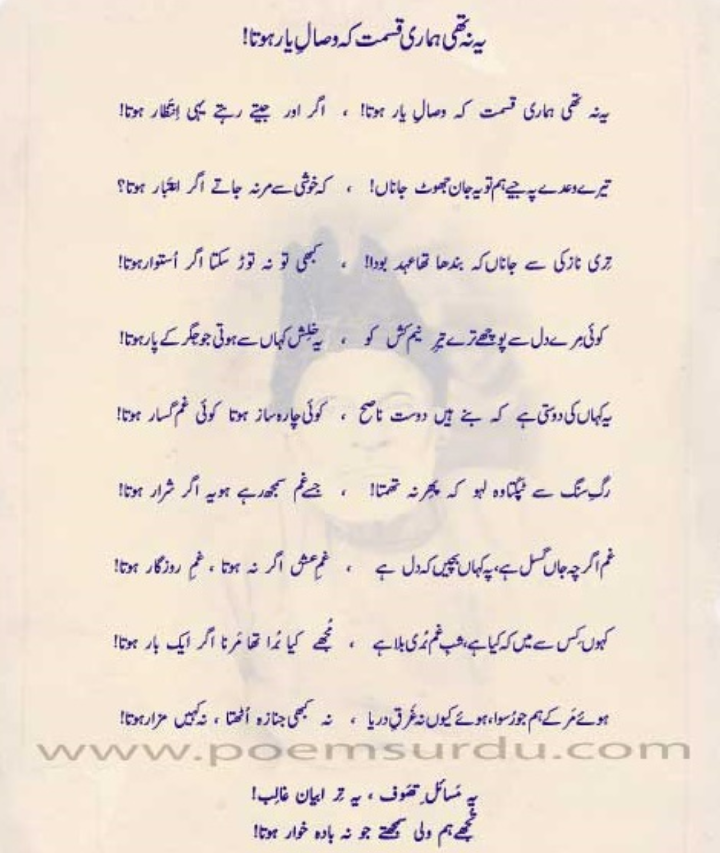 یہ نہ تھی ہماری قسمت کہ وصالِ یار ہوتا!
یہ نہ تھی ہماری قسمت کہ وصالِ یار ہوتا! ، اگر اور جیتے رہتے یہی اِنتظار ہوتا!
تیرے وعدے پہ جیے ہم تو یہ جان جھوٹ جاناں! ، کہ خوشی سے مر نہ جاتے اگر اعتبار ہوتا؟
تِری نازکی سے جاناں کہ بندھا تھا عہد بودا! ، کبھی تو نہ توڑ سکتا اگر اُستوار ہوتا!
کوئی مِرے دل سے پوچھے ترے تیرِ نیم کش کو ، یہ خلِش کہاں سے ہوتی جو جگر کے پار ہوتا!
یہ کہاں کی دوستی ہے کہ بنے ہیں دوست ناصح ، کوئی چارہ ساز ہوتا کوئی غم گسار ہوتا!
رگِ سنگ سے ٹپکتا وہ لہو کہ پھر نہ تھمتا! ، جسے غم سمجھ رہے ہو یہ اگر شرار ہوتا!
غم اگرچہ جاں گسل ہے، پہ کہاں بچیں کہ دل ہے ، غمِ عشق اگر نہ ہوتا ، غمِ روزگار ہوتا!
کہوں کِس سے میں کہ کیا ہے، شبِ غم بُری بلا ہے ، مُجھے کیا بُرا تھا مَرنا اگر ایک بار ہوتا!
ہوئے مَر کے ہم جو رُسوا، ہوئے کیوں نہ غَرقِ دریا ، نہ کبھی جنازہ اُٹھتا ، نہ کہیں مزار ہوتا!
www.poemsurdu.com
یہ مَسائلِ تصَوف ، یہ تِر ابیان غالِب!
تُجھے ہم ولی سمجھتے جو نہ بادہ خوار ہوتا!